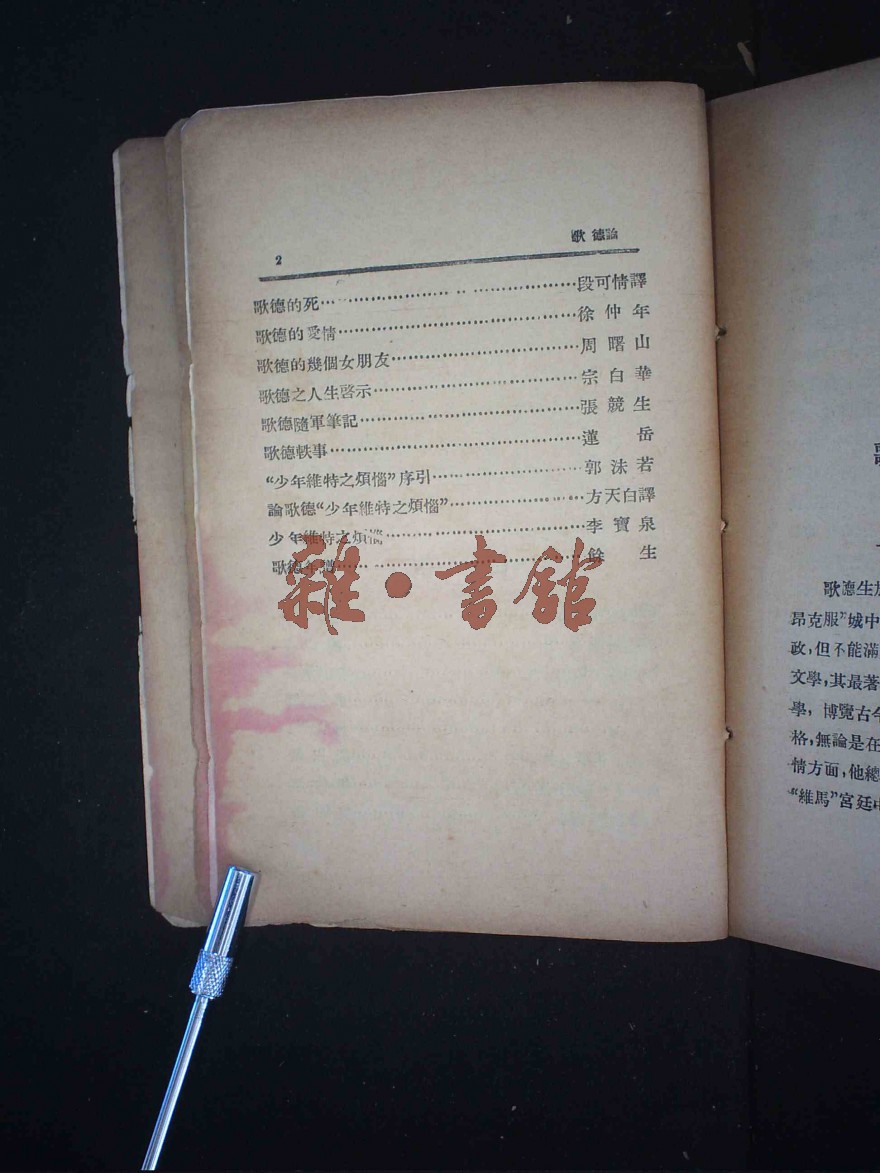 2
歌德論
歌德的死……段可情譯
歌德的愛情……徐仲年
歌德的幾個女朋友……周曙山
歌德之人生啓示……宗白華
歌德隨軍筆記……張競生
歌德軼事……蓮岳
“少年維特之煩惱”序引……郭沫若
論歌德“少年維特之煩惱”……方天白譯
少年維特之煩惱……李寶泉
歌德年譜……餘生
雜·書館
歌德生於
昂克服”城中
政,但不能滿
文學,其最著
學,博覽古今
格,無論是在
情方面,他總
“維馬”宮廷